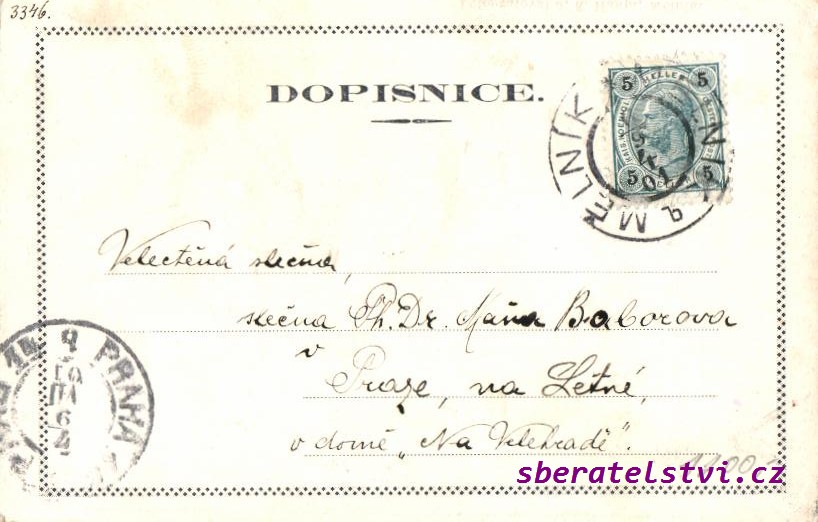 3346.
DOPISNICE.
5 HELLER 5
5 5
MĚLNÍK
9
4
01
MĚLNIK
Velectěná slečna,
slečna Ph. Dr. Máňa Baborova
v
Praze, na Letné,
v domě „Na Velehradě".
PRAHA
sberatelstvi.cz